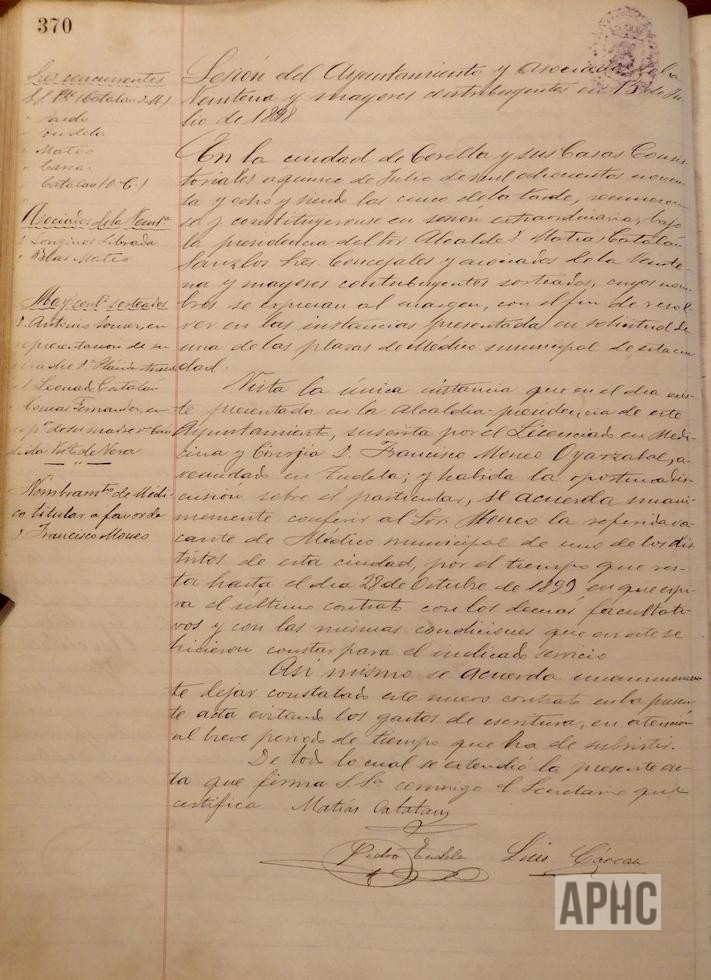 370
Sres concurrentes
S.S. Pte. (Catalan D. M.)
" Pardo
" Tudela
" Mateo
" Catalan (D. C.)
Asociados de la Veint.ª
D. Longinos Librada
" Blas Mateo
May.s cont.s sorteados
D. Antonio en
representacion de su
madre D.ª
D. Leonardo Catalán
Tomas Fernandez, en
rep.n de su madre D.ª
Nombram.to de Médi-
co titular a favor de
D. Francisco Moneo
Sesión del Ayuntamiento y asociados de la
Veintena y mayores contribuyentes en 15 de Ju-
lio de 1898
En la ciudad de Corella y sus Casas Consis-
toriales a quince de Julio de mil ochocientos noven-
ta y ocho y siendo las cinco de la tarde, reunieron-
se y constituyeronse en sesion extraordinaria, bajo
la presidencia del Sor. Alcalde D. Matias Catalan
Sanz los Sres. Concejales y asociados de la Veinte-
na y mayores contribuyentes sorteados, cuyos nom-
bres se expresan al margen, con el fin de resol-
ver en las instancias presentada en solicitud de
una de las plazas de Médico municipal de esta ciu-
dad.
Vista la única instancia que en el dia exis-
te presentada en la Alcaldía-presidencia de este
Ayuntamiento, suscrita por el Licenciado en Medi-
cina y Cirujía D. Francisco Moneo Oyarzabal, a-
vecindado en Tudela; y habida la oportuna dis-
cusión sobre el particular, se acuerda unani-
memente conferir al Sor. Moneo la referida va-
cante de Médico municipal de uno de los dis-
tritos de esta ciudad, por el tiempo que res-
ta hasta el dia 28 de Octubre de 1899 en que espi-
ra el último contrato con los demás facultati-
vos y con las mismas condiciones que en este se
hicieron constar para el indicado servicio
Asi mismo se acuerda unanimemen-
te dejar constatado este nuevo contrato en la presen-
te acta evitando los gastos de escritura, en atención
al breve periodo de tiempo que ha de subsistir.
De todo lo cual se extendió la presente ac-
ta que firma S. Sª conmigo el Secretario que
certifica
Matías Catalan
Pedro Tudela
Luis
APHC